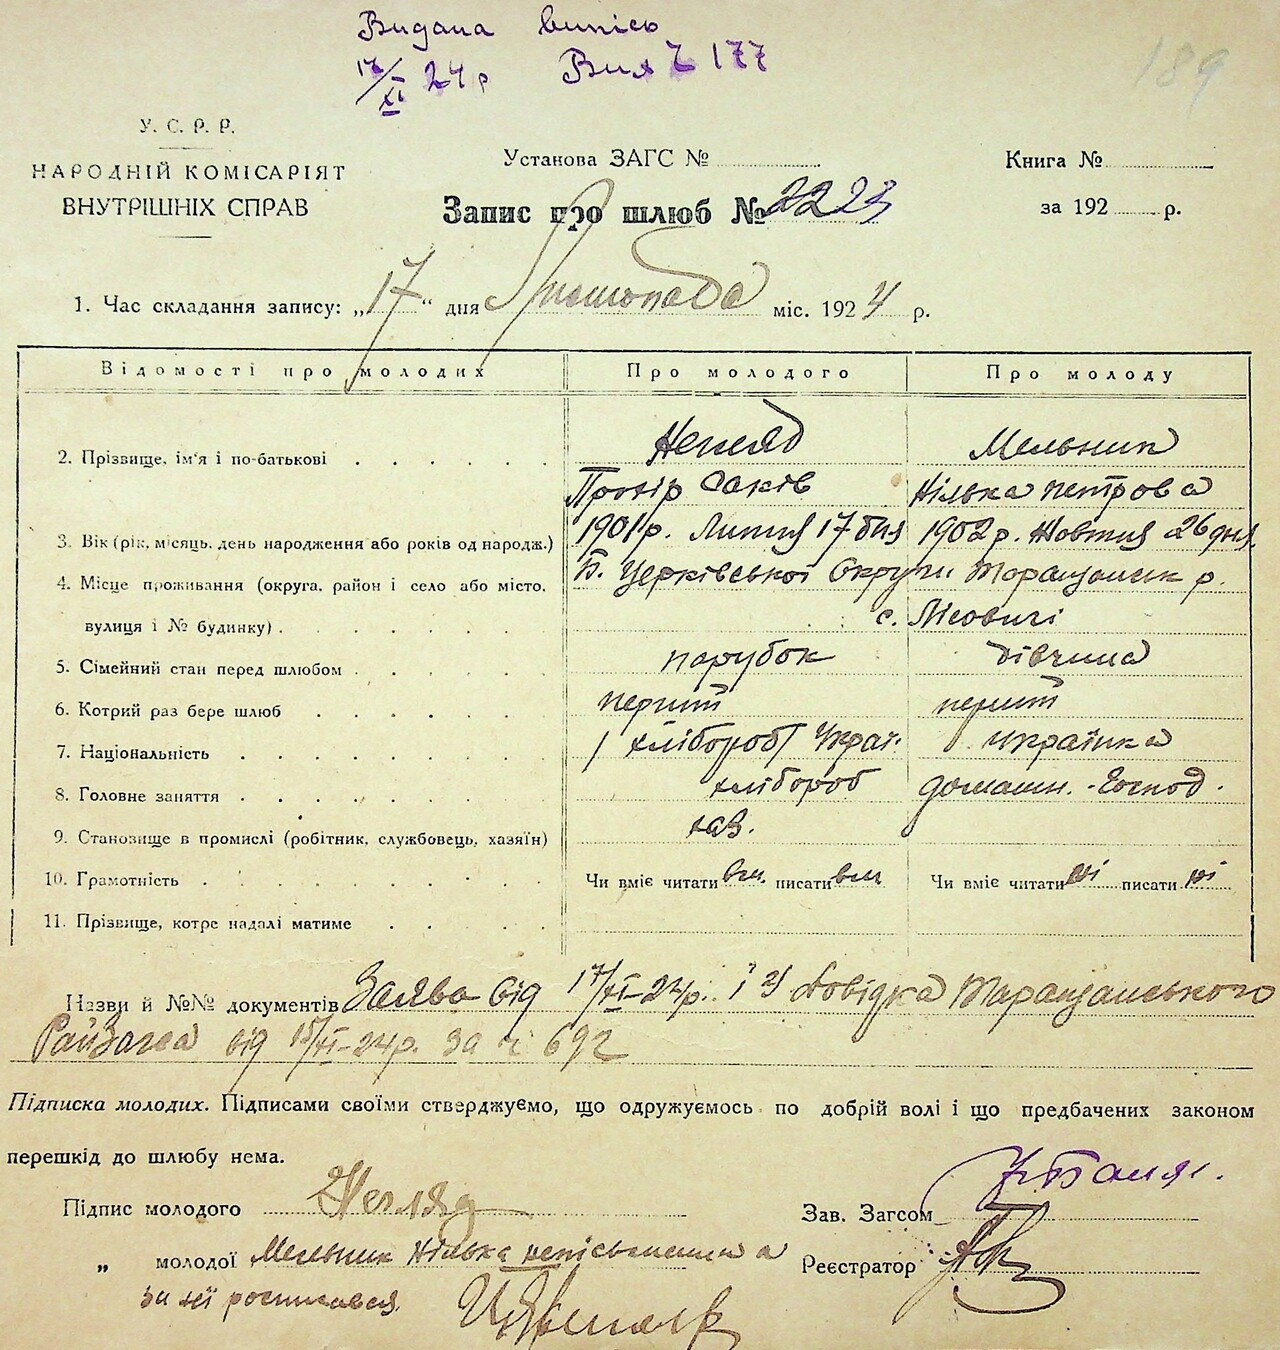 Видана випись
17/XI 24 р Вих 177
189
У. С. Р. Р.
НАРОДНІЙ КОМІСАРІЯТ
ВНУТРІШНІХ СПРАВ
Установа ЗАГС №
Книга №
за 192 р.
Запис про шлюб № 2223
1. Час складання запису: „17“ дня Листопада міс. 1924 р.
Відомості про молодих Про молодого Про молоду
2. Прізвище, ім'я і по-батькові Непляд Мельник
Прохір Саків Нілька Петрова
3. Вік (рік, місяць, день народження або років од народж.) 1901 р. Липня 17 дня 1902 р. Жовтня 26 дня.
4. Місце проживання (округа, район і село або місто, Б. Церківської Округи Таращанськ р.
вулиця і № будинку) с. Лісовичі
5. Сімейний стан перед шлюбом парубок дівчина
6. Котрий раз бере шлюб перший перший
7. Національність / хлібороб / Украї. українка
8. Головне заняття хлібороб домашн. господ.
9. Становище в промислі (робітник, службовець, хазяїн) хаз.
10. Грамотність Чи вміє читати вм. писати вм Чи вміє читати ні писати ні
11. Прізвище, котре надалі матиме
Назви й №№ документів Заява від 17/XI-24р. і Довідка Таращанського
РайЗагса від 15/XI-24 р. за ч 692
Підписка молодих. Підписами своїми стверджуємо, що одружуємось по добрій волі і що предбачених законом
перешкід до шлюбу нема.
Підпис молодого Непляд
Зав. Загсом
„ молодої Мельник Нілька неписьменна а
Реєстратор
за неї розписався